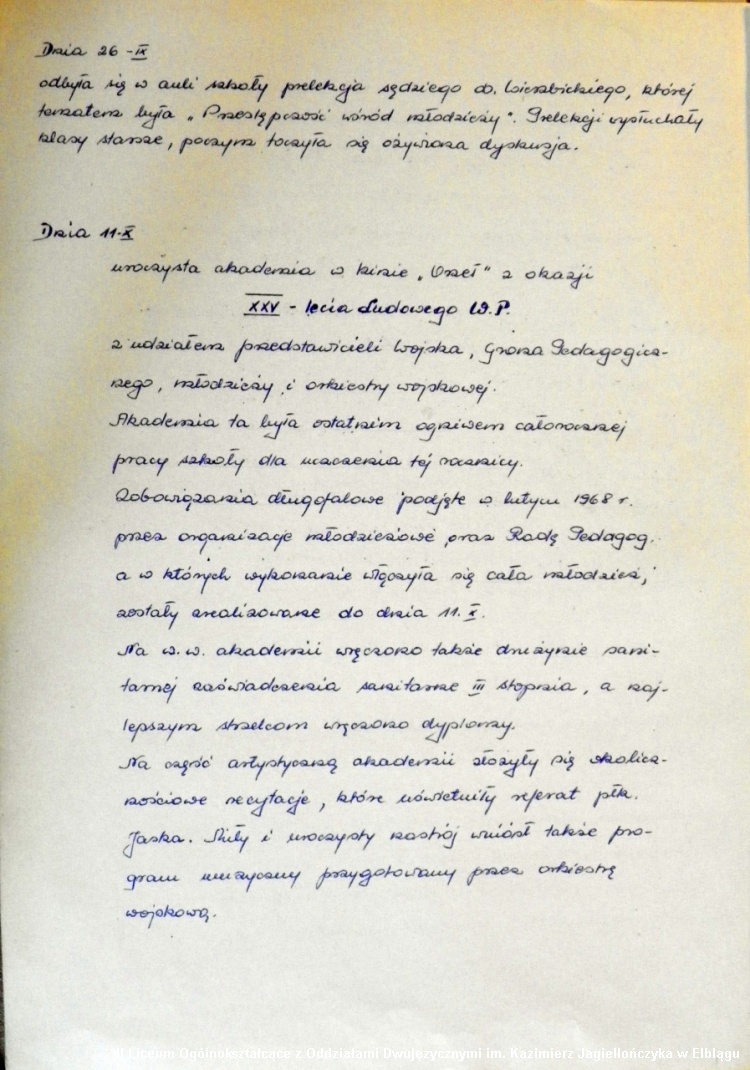 Dnia 26-IX
odbyła się w auli szkoły prelekcja sędziego ob. Wierzbickiego, której
tematem była „Przestępczość wśród młodzieży". Prelekcji wysłuchały
klasy starsze, poczym toczyła się ożywiona dyskusja.
Dnia 11-X
uroczysta akademia w kinie „Orzeł" z okazji
XXV - lecia Ludowego W.P.
z udziałem przedstawicieli Wojska, Grona Pedagogicz-
nego, młodzieży i orkiestry wojskowej.
Akademia ta była ostatnim ogniwem całorocznej
pracy szkoły dla uczczenia tej rocznicy.
Zobowiązania długofalowe podjęte w lutym 1968 r.
przez organizacje młodzieżowe oraz Radę Pedagog.
a w których wykonanie włączyła się cała młodzież,
zostały zrealizowane do dnia 11.X.
Na w.w. akademii wręczono także drużynie sani-
tarnej zaświadczenia sanitarne III stopnia, a naj-
lepszym strzelcom wręczono dyplomy.
Na część artystyczną akademii złożyły się okolicz-
nościowe recytacje, które uświetniły referat płk.
Jaska. Miły i uroczysty nastrój wniósł także pro-
gram muzyczny przygotowany przez orkiestrę
wojskową.
II Liceum Ogólnokształcące z Oddziałami Dwujęzycznymi im. Kazimierz Jagiellończyka w Elblągu